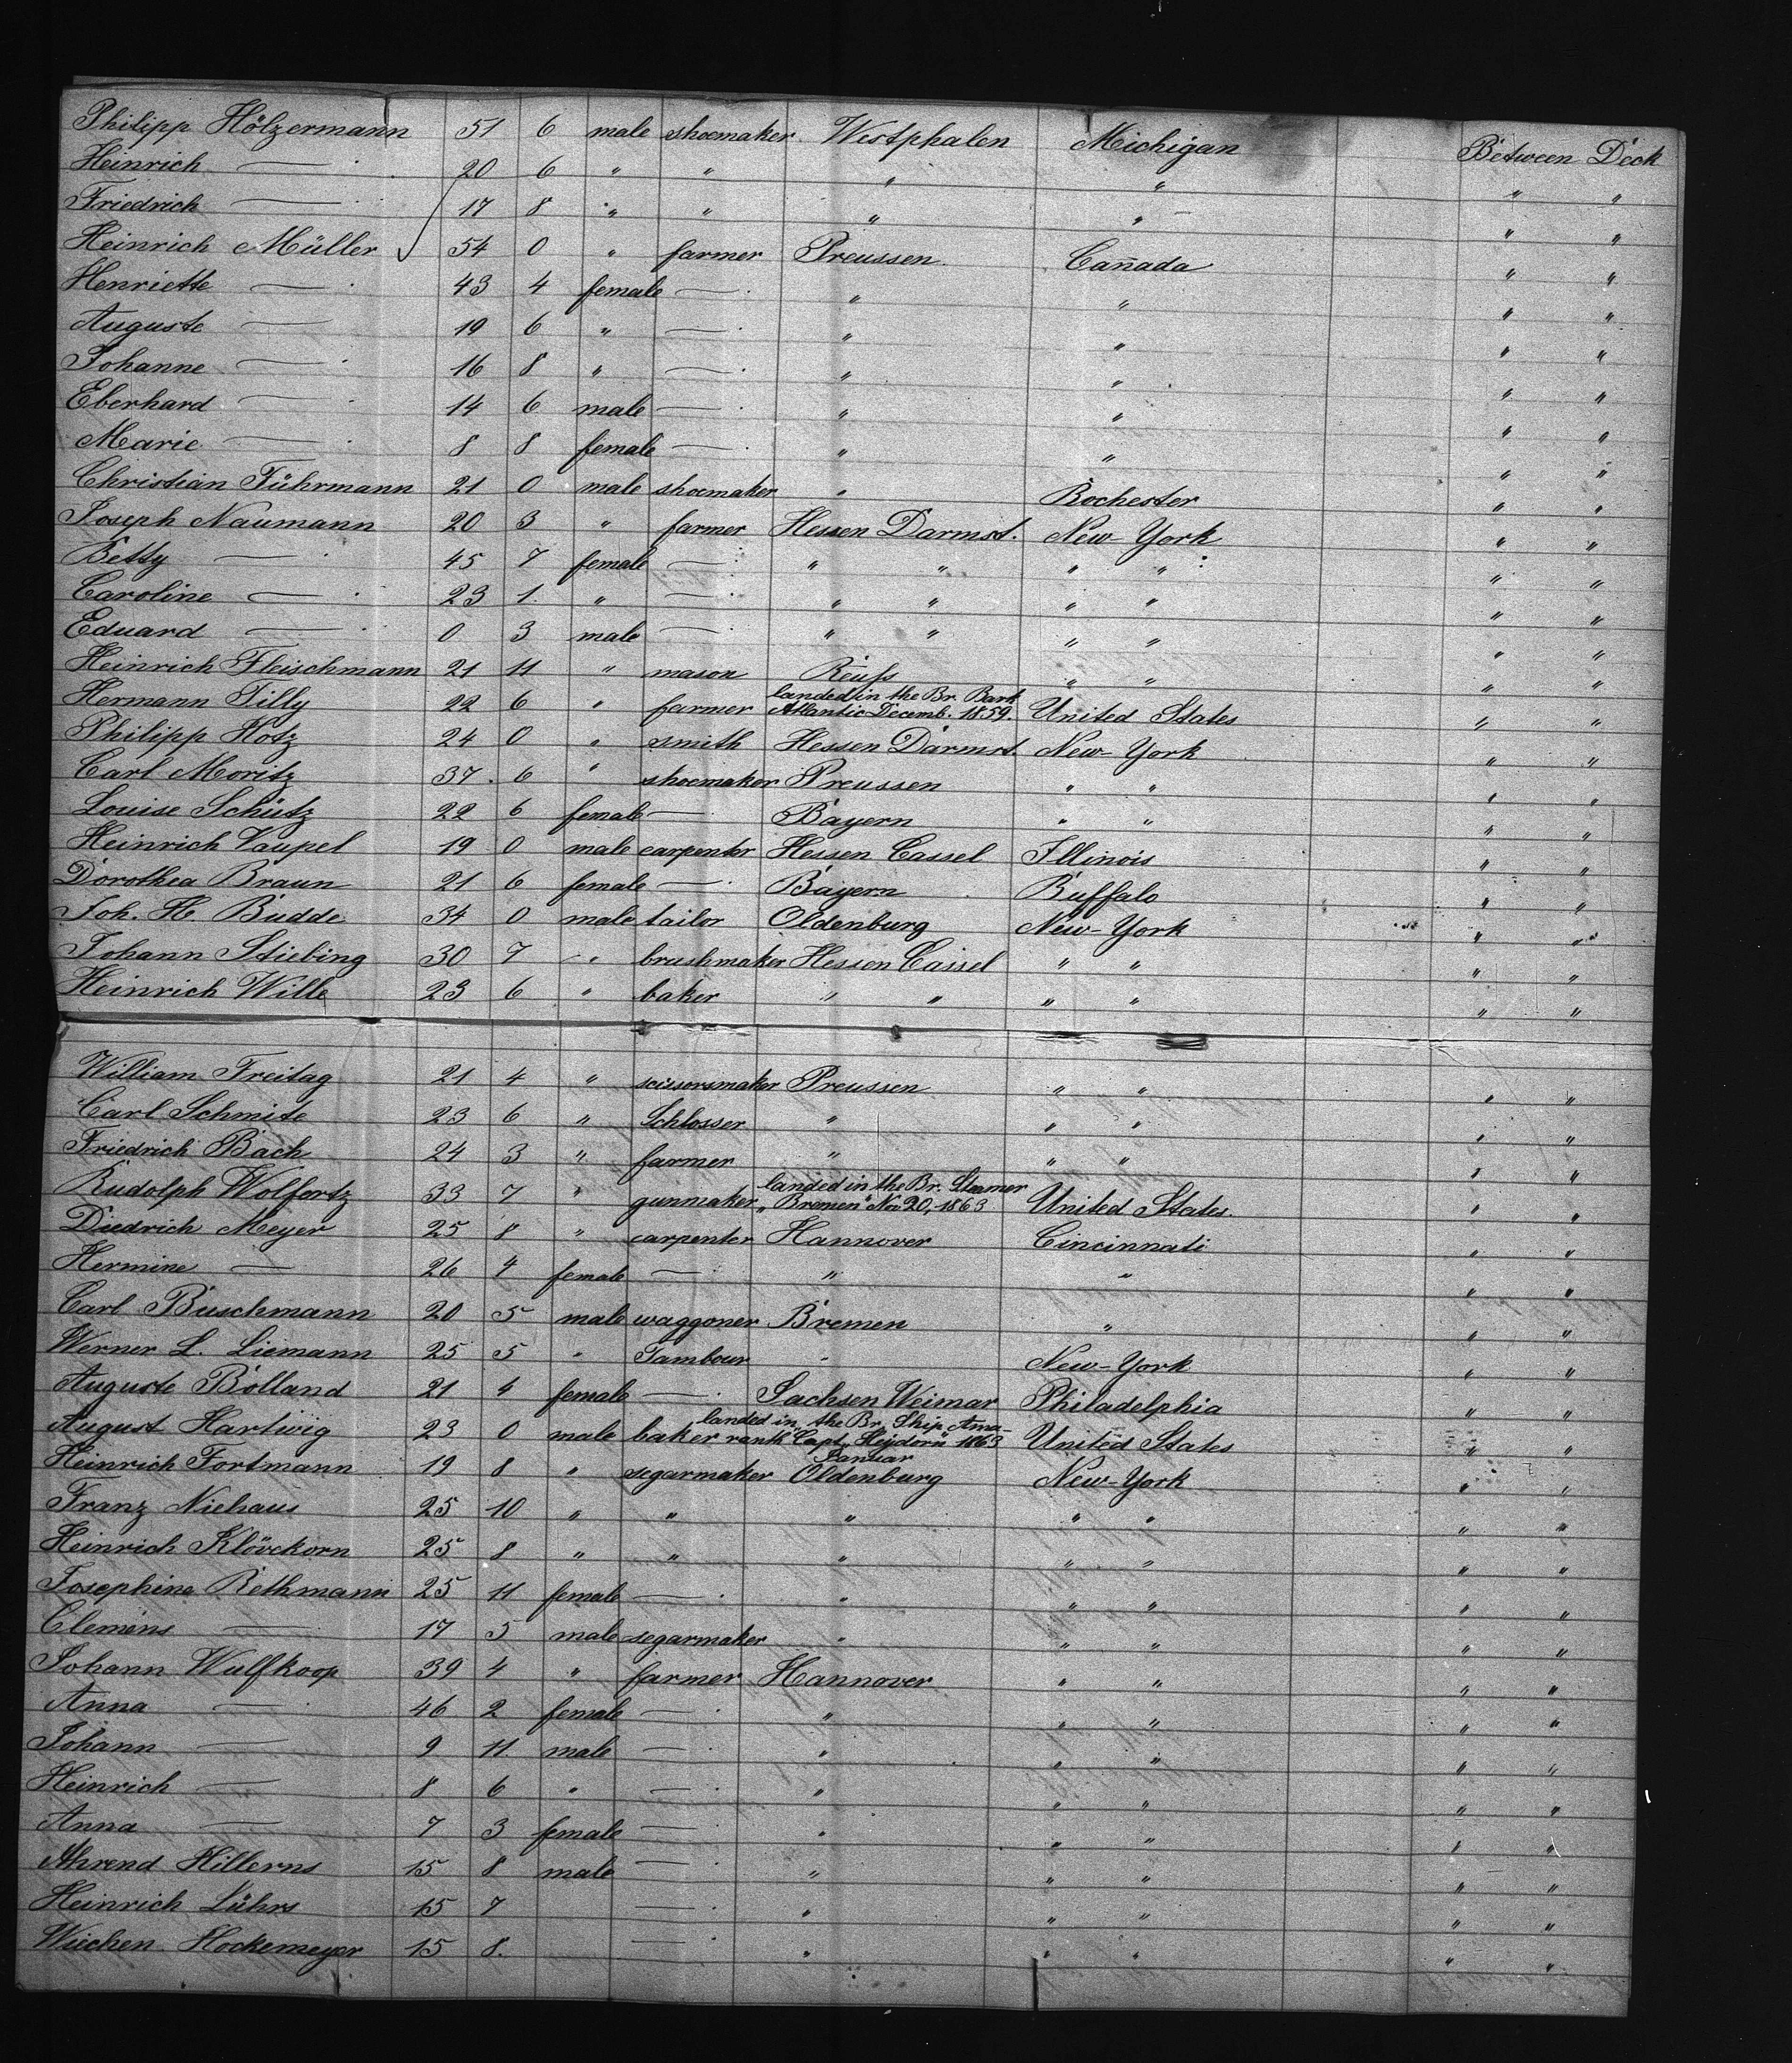 Philipp Hölzermann 51 6 male shoemaker. Westphalen Michigan Between Deck
Heinrich — 20 6 " " " " " "
Friedrich — 17 8 " " " " " "
Heinrich Müller 54 0 " farmer Preussen Canada " "
Henriette — 43 4 female — " " " "
Auguste — 19 6 " — " " " "
Johanne — 16 8 " — " " " "
Eberhard — 14 6 male — " " " "
Marie — 8 8 female — " " " "
Christian Führmann 21 0 male shoemaker " Rochester " "
Joseph Naumann 20 3 " farmer Hessen Darmst. New-York " "
Betty — 45 7 female — " " " " " "
Caroline — 23 1 " — " " " " " "
Eduard — 0 3 male — " " " " " "
Heinrich Fleischmann 21 11 " mason Reuß " " " "
Hermann Tilly 22 6 " farmer landed in the Br. Bark Atlantic Decemb. 1859. United States " "
Philipp Hotz 24 0 " smith Hessen Darmst. New-York " "
Carl Moritz 37 6 " shoemaker Preussen " " " "
Louise Schütz 22 6 female — Bayern " " " "
Heinrich Vaupel 19 0 male carpenter Hessen Cassel Illinois " "
Dorothea Braun 21 6 female — Bayern Buffalo " "
Joh. H. Budde 34 0 male tailor Oldenburg New-York " "
Johann Stiebing 30 7 " brushmaker Hessen Cassel " " " "
Heinrich Wille 23 6 " baker " " " " " "
William Freitag 21 4 " scissorsmaker Preussen " " " "
Carl Schmitz 23 6 " Schlosser " " " " "
Friedrich Bach 24 3 " farmer " " " " "
Rudolph Wolfertz 33 7 " gunmaker landed in the Br. Steamer „Bremen" Nov 20, 1863 United States. " "
Diedrich Meyer 25 8 " carpenter Hannover Cincinnati " "
Hermine — 26 4 female — " " " "
Carl Buschmann 20 5 male waggoner Bremen " " "
Werner L. Liemann 25 5 " Tambour " New-York " "
Auguste Bolland 21 4 female — Sachsen Weimar Philadelphia " "
August Hartwig 23 0 male baker landed in the Br. Ship Ama-ranth Capt. Heydorn 1863 Januar United States " "
Heinrich Fortmann 19 8 " segarmaker Oldenburg New-York " "
Franz Niehaus 25 10 " " " " " " "
Heinrich Klövekorn 25 8 " " " " " " "
Josephine Rethmann 25 11 female — " " " " "
Clemens — 17 5 male segarmaker " " " " "
Johann Wulfkoop 39 4 " farmer Hannover " " " "
Anna — 46 2 female — " " " " "
Johann — 9 11 male — " " " " "
Heinrich — 8 6 " — " " " " "
Anna — 7 3 female — " " " " "
Ahrend Hillerns 15 8 male — " " " " "
Heinrich Lührs 15 7 — " " " " "
Hockemeyer 15 8. — " " " " "